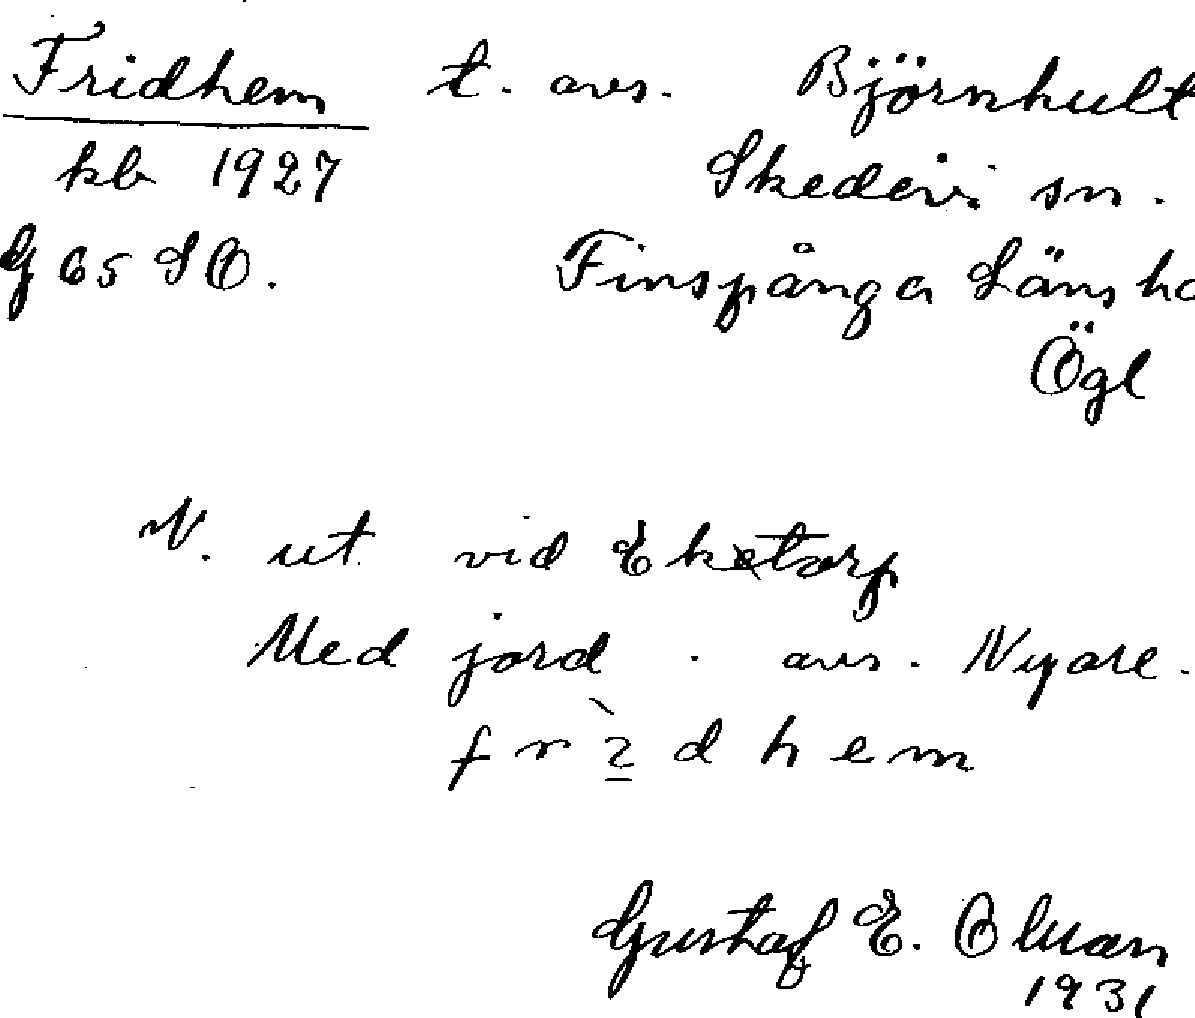 Fridhem t. avs. Björnhult
kb 1927 Skedevi sn.
G 65 SO. Finspånga Läns hd
Ögl
N. ut vid Eketorp
Med jord. avs. Nyare.
fr2dhem
Gustaf E. Oluan
1931